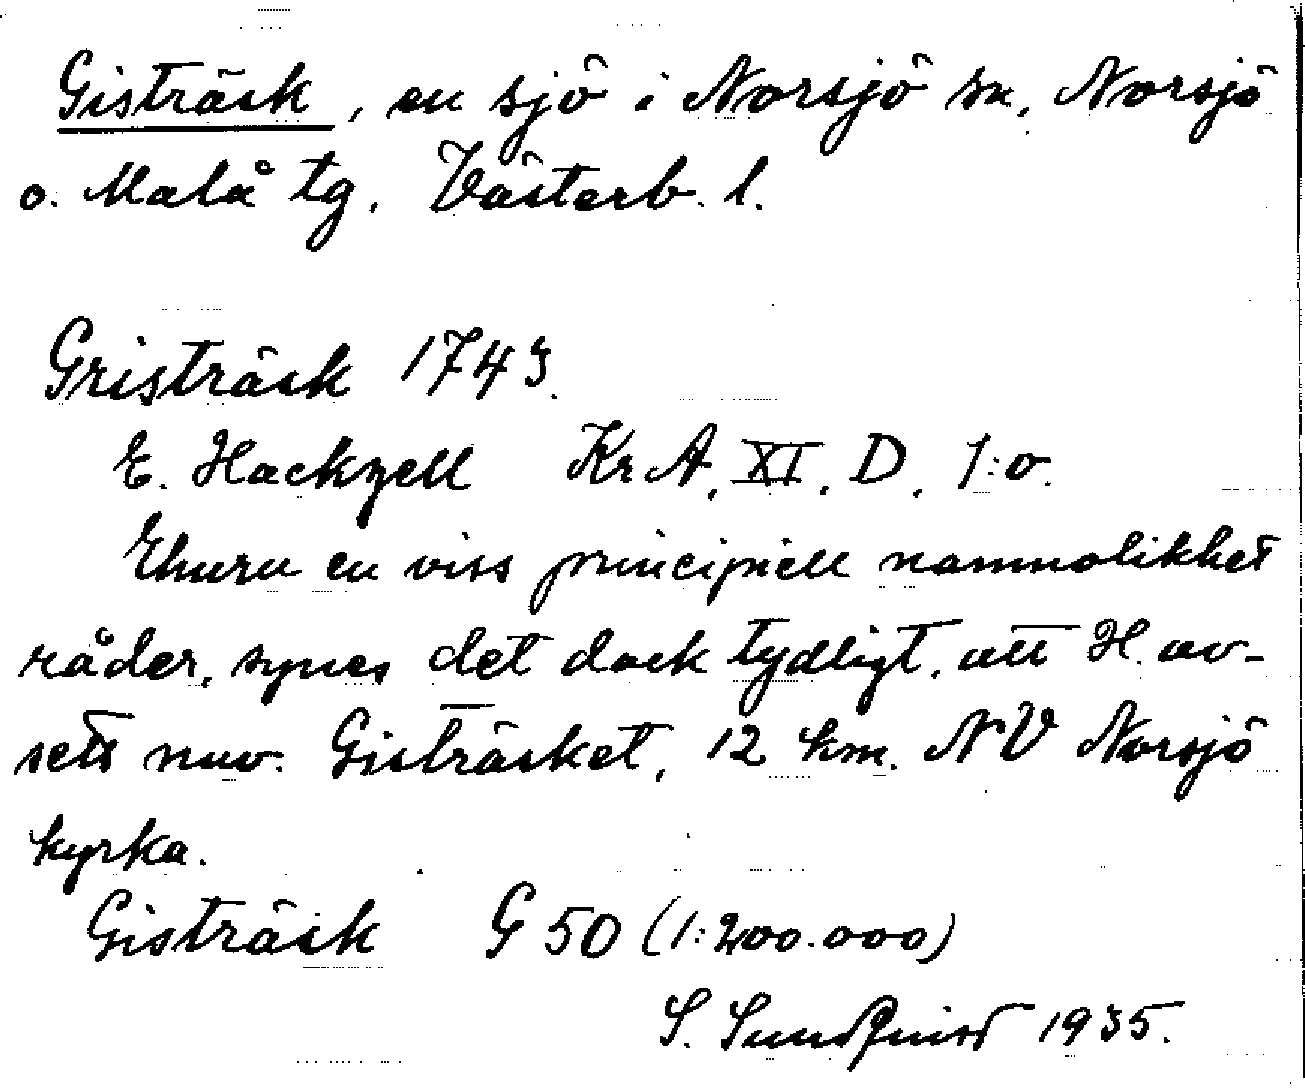 Gisträsk, en sjö i Norsjö sn, Norsjö
o. Malå tg, Västerb. l.
Gristräsk 1743.
E. Hackzell KrA, XI, D, 1:o.
Ehuru en viss principiell namnolikhet
råder, synes det dock tydligt, att H. av-
sett nuv. Gisträsket, 12 km. NV Norsjö
kyrka.
Gisträsk G 50 (1:200.000)
S. Sundquist 1935.